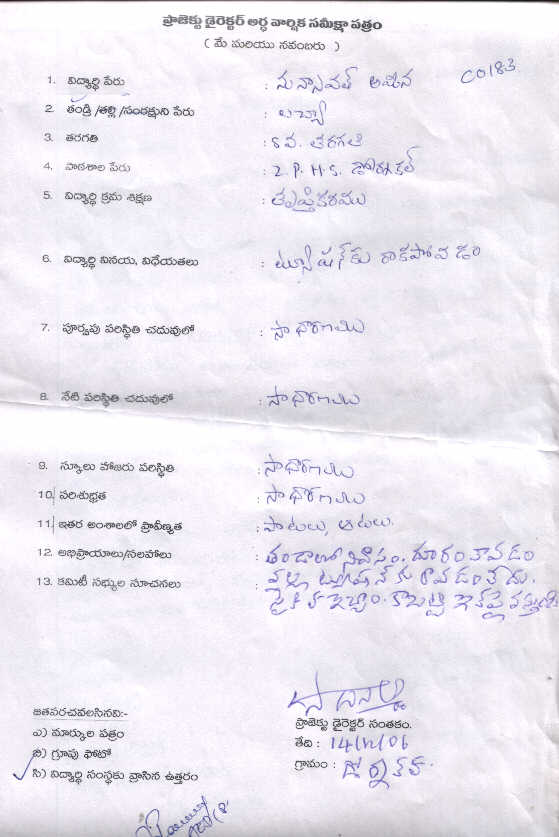 ప్రాజెక్టు డైరెక్టర్ అర్ధ వార్షిక సమీక్షా పత్రం
( మే మరియు నవంబరు )
C0183
1. విద్యార్థి పేరు : అమీన
2. తండ్రి /తల్లి /సంరక్షుని పేరు : లచ్యా
3. తరగతి : 8 వ. తరగతి
4. పాఠశాల పేరు : Z.P.H.S. డోర్నకల్
5. విద్యార్థి క్రమ శిక్షణ : తృప్తికరము
6. విద్యార్థి వినయ, విధేయతలు : ట్యూషన్‌కు రాకపోవడం
7. పూర్వపు పరిస్థితి చదువులో : సాధారణము
8. నేటి పరిస్థితి చదువులో : సాధారణము
9. స్కూలు హాజరు పరిస్థితి : సాధారణము
10. పరిశుభ్రత : సాధారణము
11. ఇతర అంశాలలో ప్రావీణ్యత : పాటలు, ఆటలు.
12. అభిప్రాయాలు/సలహాలు : తండాలో నివాసం. దూరం కావడం
13. కమిటీ సభ్యుల సూచనలు : వల్ల ట్యూషన్‌కు రావడంలేదు.
సైకిల్ ఇచ్చాం. కాబట్టి ఇకపై
జతపరచవలసినవి:-
ఎ) మార్కుల పత్రం
బి) గ్రూపు ఫోటో
సి) విద్యార్థి సంస్థకు వ్రాసిన ఉత్తరం
ప్రాజెక్టు డైరెక్టర్ సంతకం.
తేది : 14/12/06
గ్రామం : డోర్నకల్.